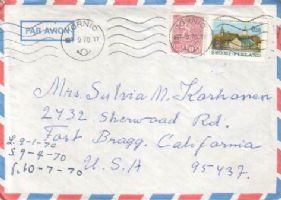 PAR AVION
TORNIO
9.70.17
SUOMI FINLAND
Mrs. Sylvia M. Korhonen
2732 Sherwood Rd.
Fort Bragg. California
U.S.A 95437.
L.9-1-70
S.9-4-70